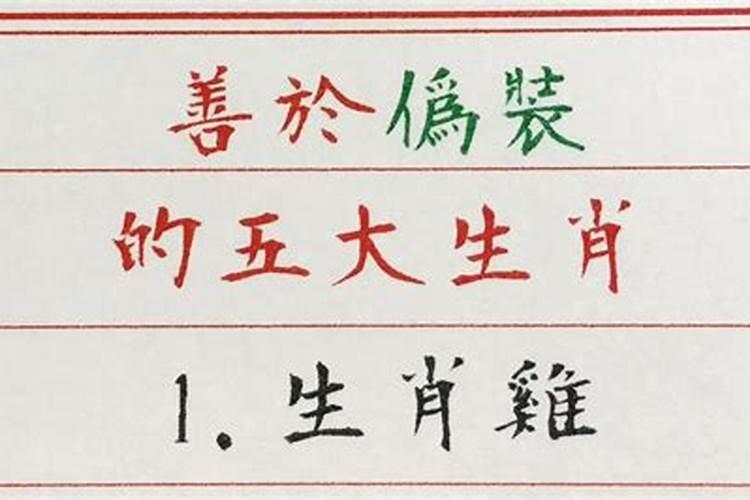 善於偽裝
的五大生肖
1.生肖雞